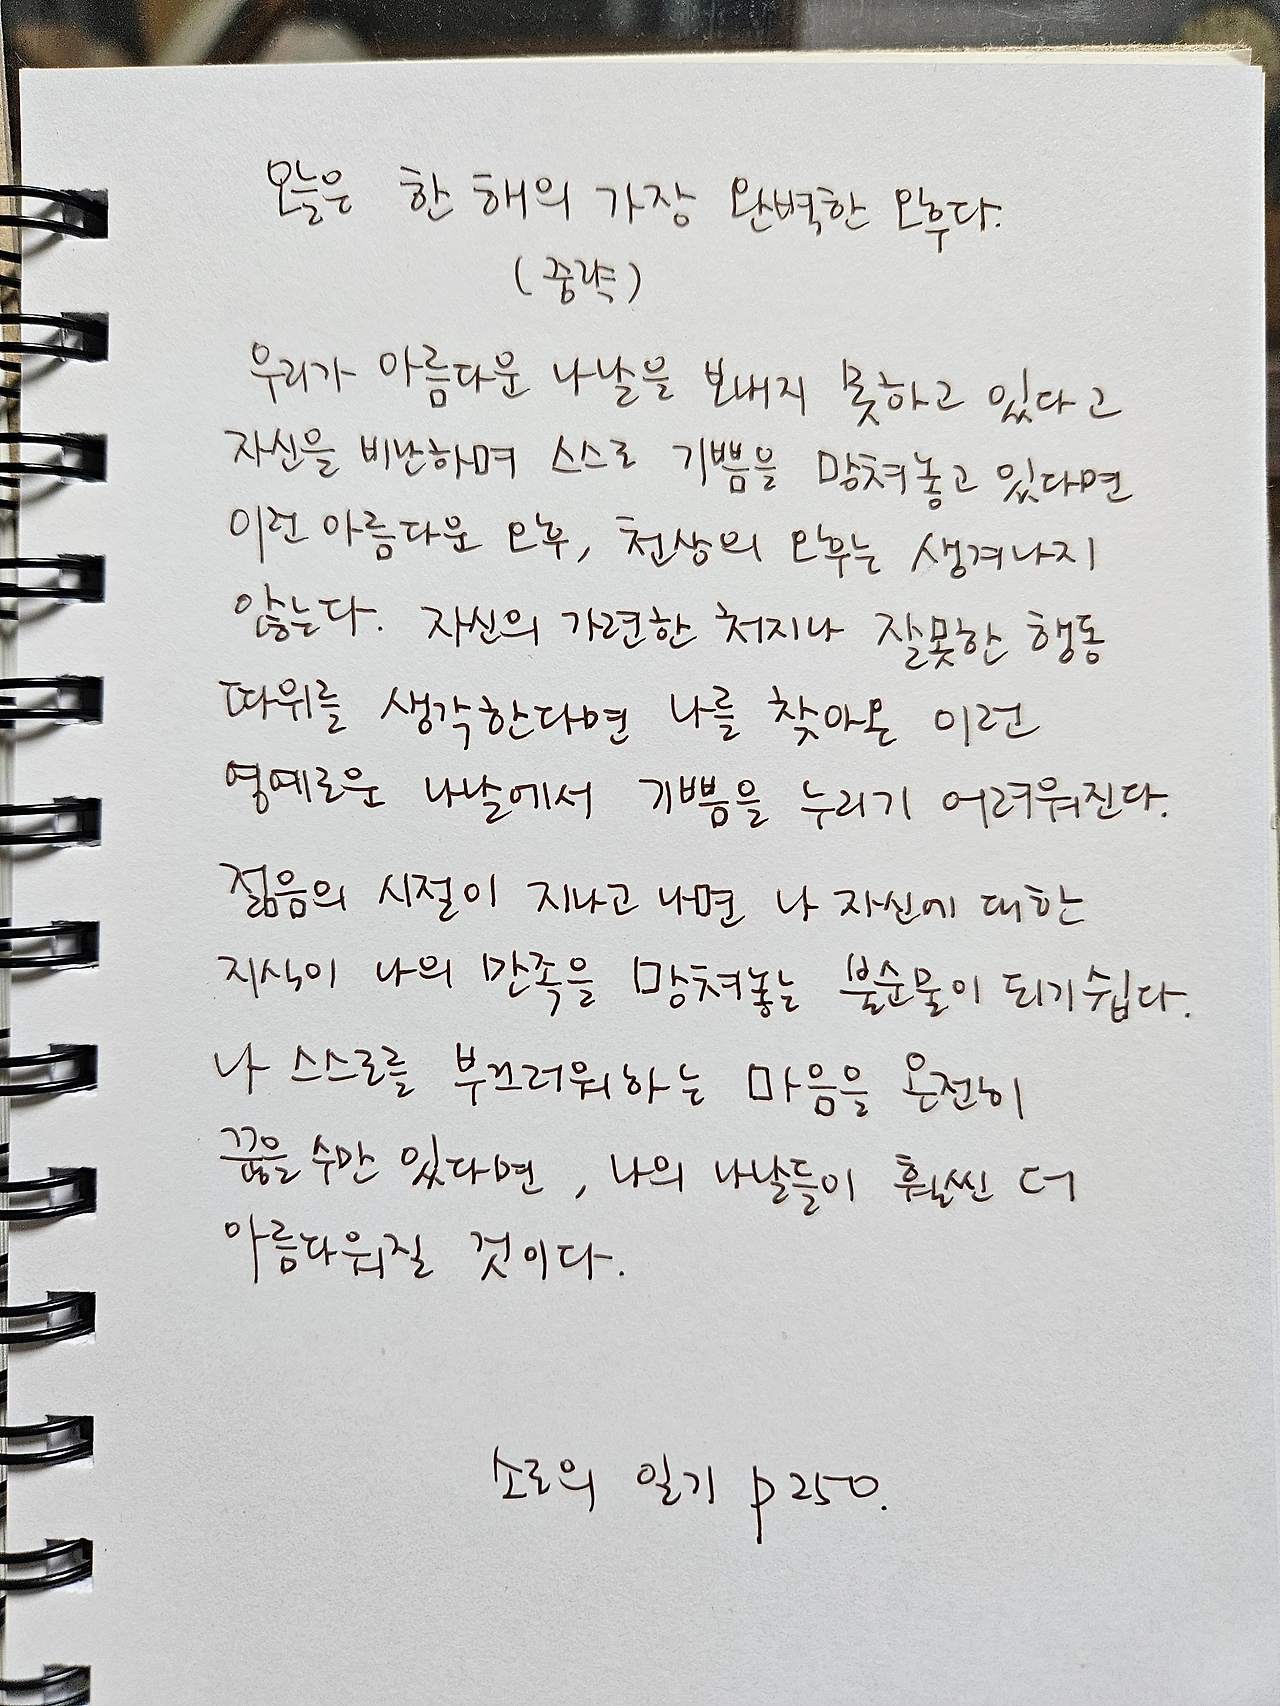 오늘은 한 해의 가장 완벽한 오후다.
(중략)
우리가 아름다운 나날을 보내지 못하고 있다고
자신을 비난하며 스스로 기쁨을 망쳐놓고 있다면
이런 아름다운 오후, 천상의 오후는 생겨나지
않는다. 자신의 가련한 처지나 잘못한 행동
따위를 생각한다면 나를 찾아온 이런
영예로운 나날에서 기쁨을 누리기 어려워진다.
젊음의 시절이 지나고 나면 나 자신에 대한
지식이 나의 만족을 망쳐놓는 불순물이 되기 쉽다.
나 스스로를 부끄러워하는 마음을 온전히
끊을 수만 있다면, 나의 나날들이 훨씬 더
아름다워질 것이다.
소로의 일기 p250.